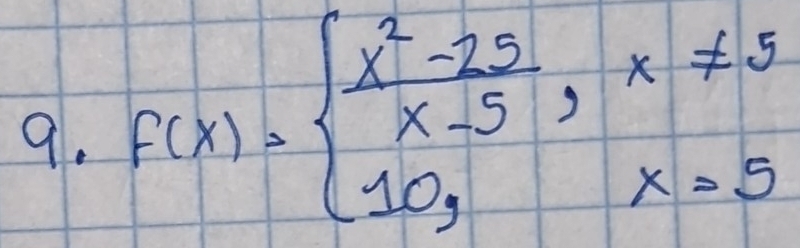 9. f(x) = { x² - 25 / x - 5 , x ≠ 5
10, x = 5